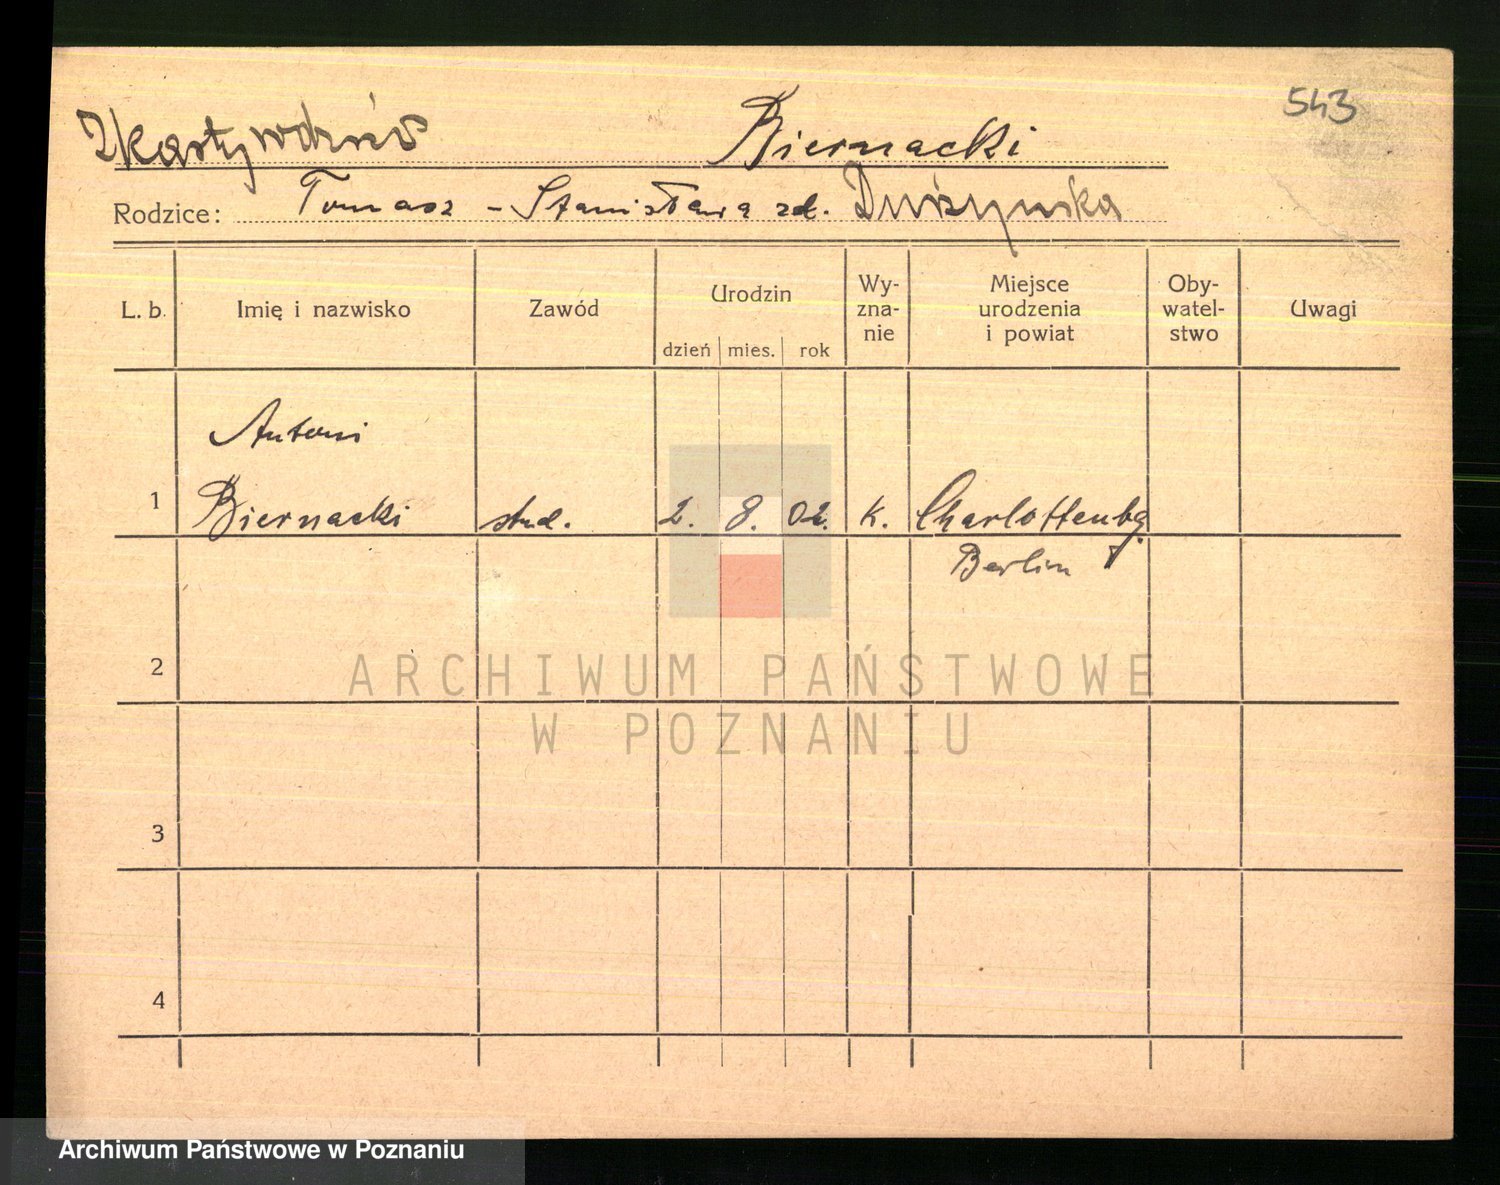 543
2 karty wtórnie
Biernacki
Rodzice: Tomasz – Stanisława zd. Duszyńska
L. b. Imię i nazwisko Zawód Urodzin dzień mies. rok Wy-
zna-
nie Miejsce
urodzenia
i powiat Oby-
watel-
stwo Uwagi
Antoni
1 Biernacki stud. 2. 8. 02. k. Charlottenbg.
Berlin
2
ARCHIWUM PAŃSTWOWE
W POZNANIU
3
4
Archiwum Państwowe w Poznaniu